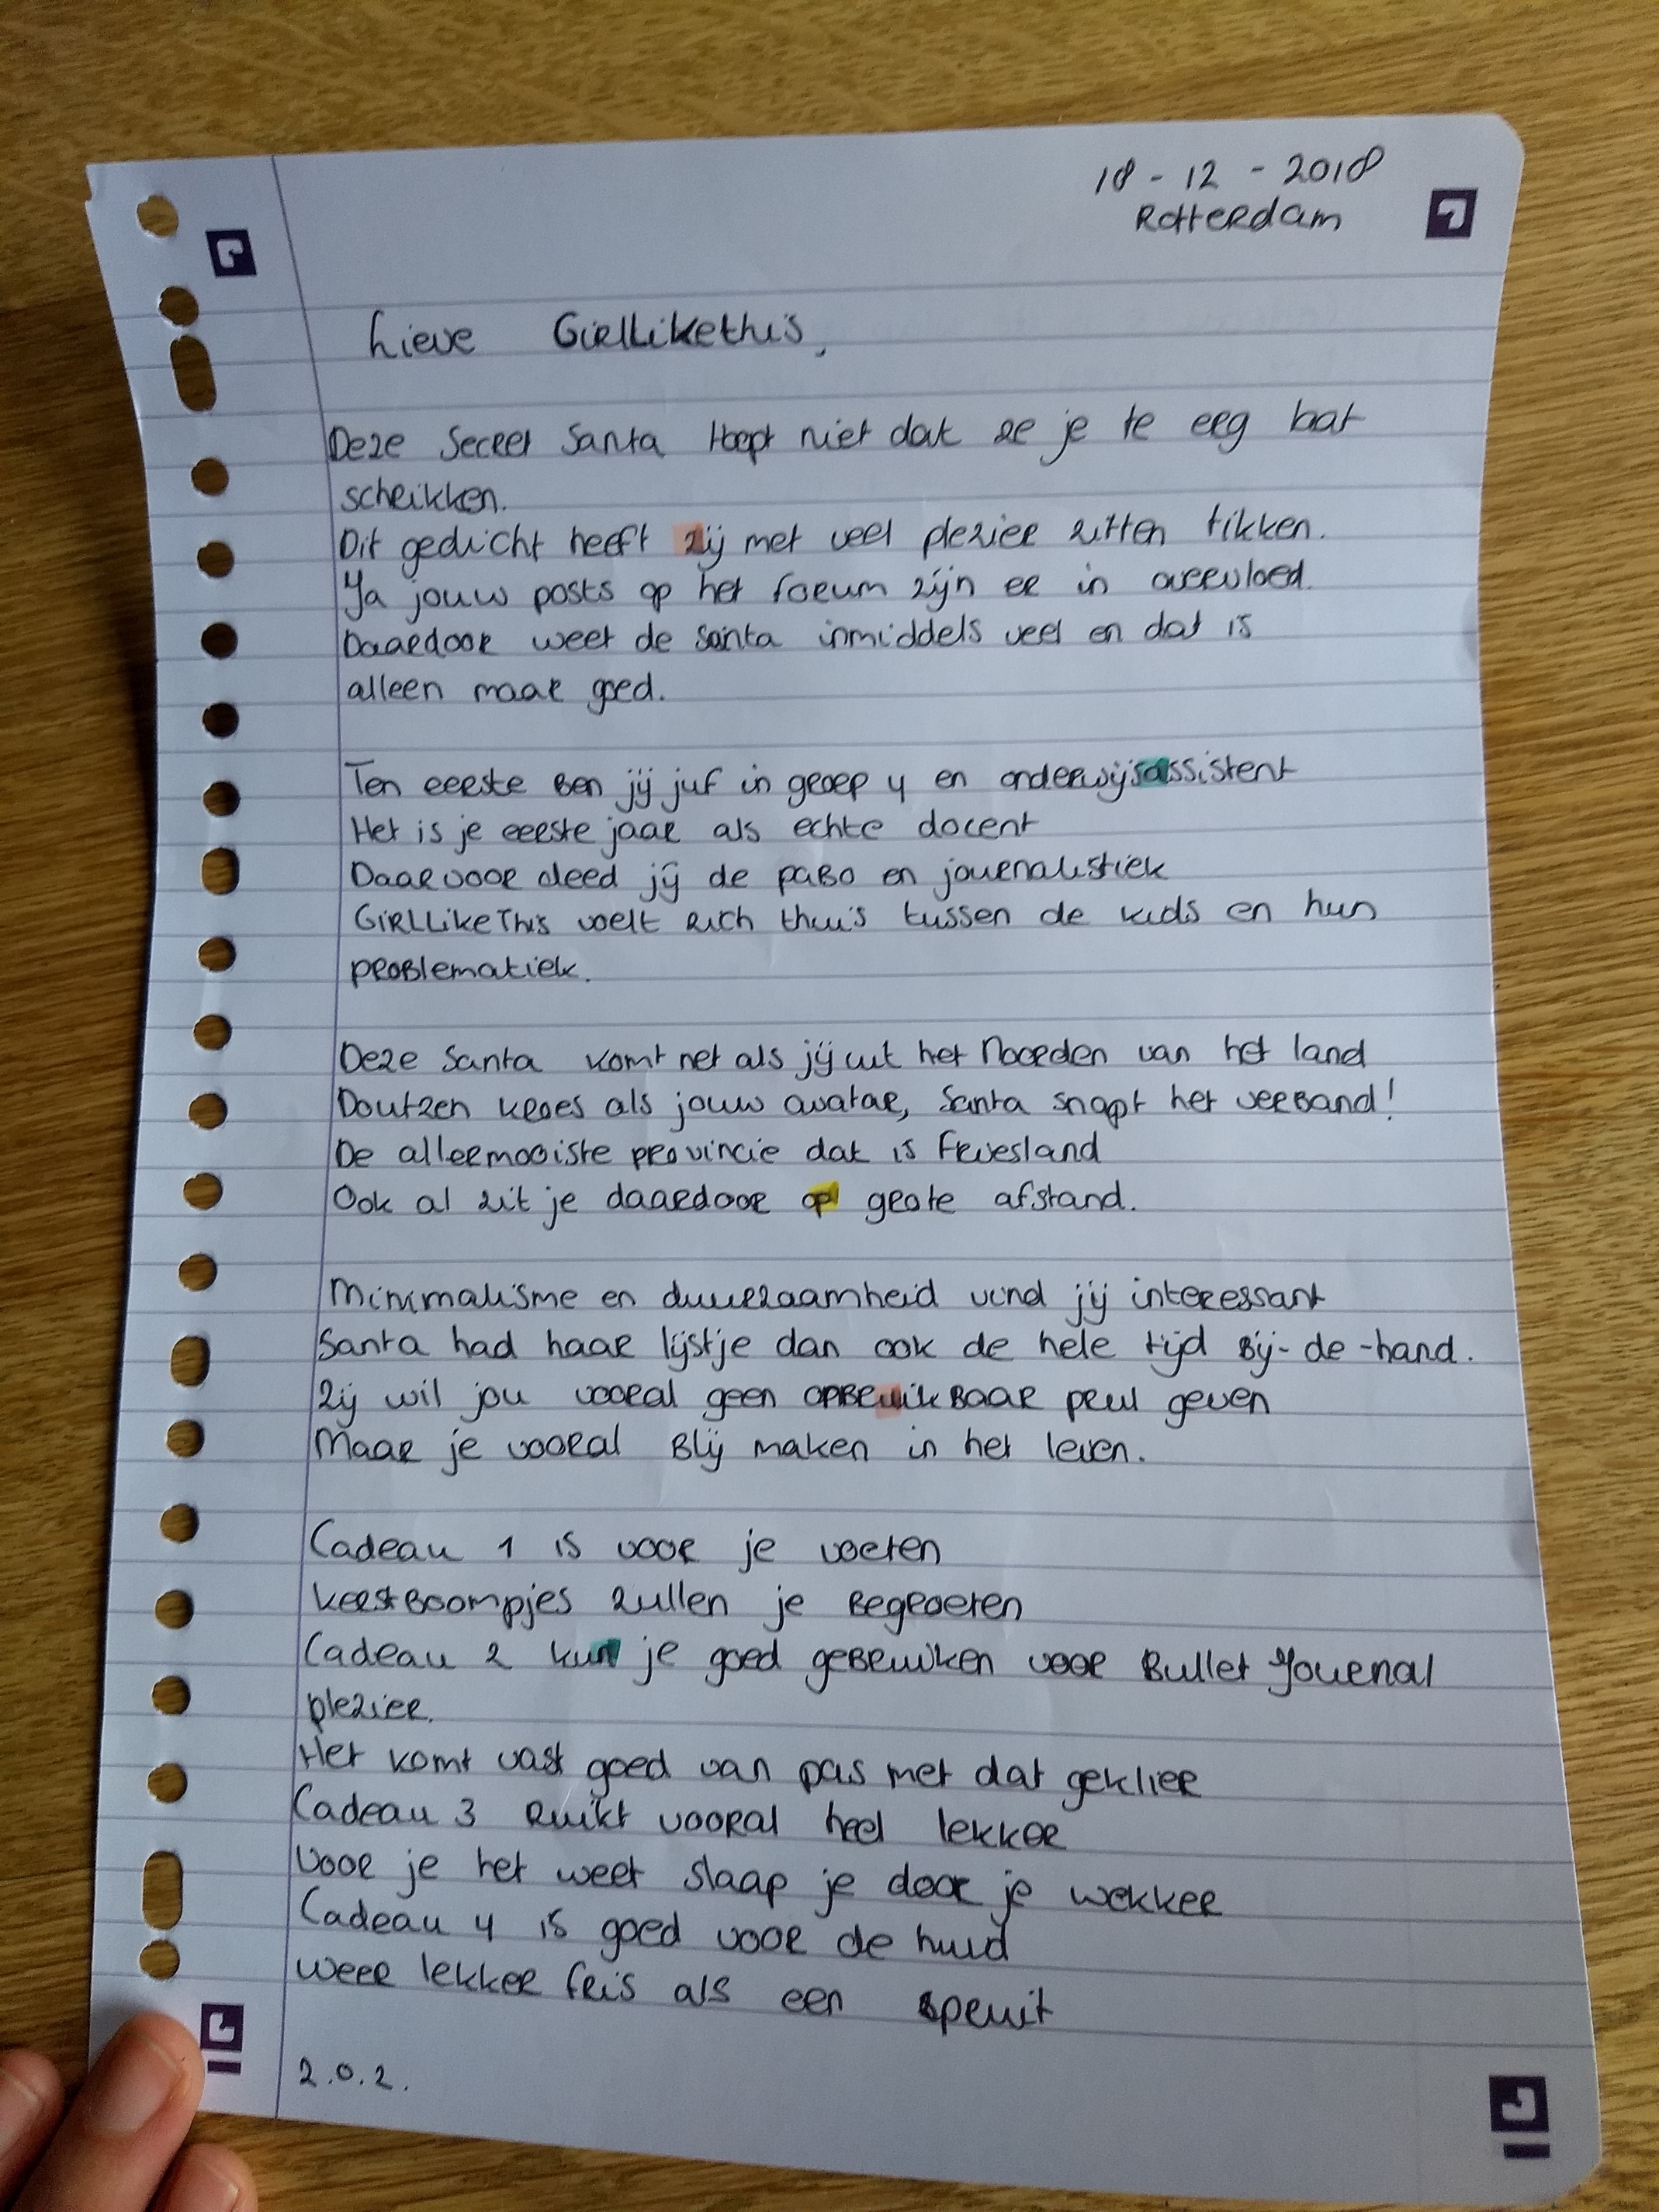 18-12-2018
Rotterdam
Lieve Girllikethis,
Deze Secret Santa Hoopt niet dat ze je te erg laat
schrikken.
Dit gedicht heeft zij met veel plezier zitten tikken.
Ja jouw posts op het forum zijn er in overvloed.
Daardoor weet de Santa inmiddels veel en dat is
alleen maar goed.
Ten eerste Ben jij juf in groep 4 en onderwijsassistent
Het is je eerste jaar als echte docent
Daarvoor deed jij de paBo en journalistiek
GIRLLikeThis voelt zich thuis tussen de kids en hun
problematiek.
Deze Santa komt net als jij uit het Noorden van het land
Doutzen Kroes als jouw avatar, Santa snapt het verband!
De allermooiste provincie dat is Friesland
Ook al zit je daardoor op grote afstand.
Minimalisme en duurzaamheid vind jij interessant
Santa had haar lijstje dan ook de hele tijd Bij-de-hand.
Zij wil jou vooral geen onbruikbaar prul geven
Maar je vooral Blij maken in het leven.
Cadeau 1 is voor je voeten
kerstBoompjes zullen je Begroeten
Cadeau 2 kun je goed geBruiken voor Bullet Journal
plezier.
Het komt vast goed van pas met dat geklier
Cadeau 3 Ruikt vooral heel lekker
Voor je het weet slaap je door je wekker
Cadeau 4 is goed voor de huid
weer lekker fris als een spruit
Z.O.Z.